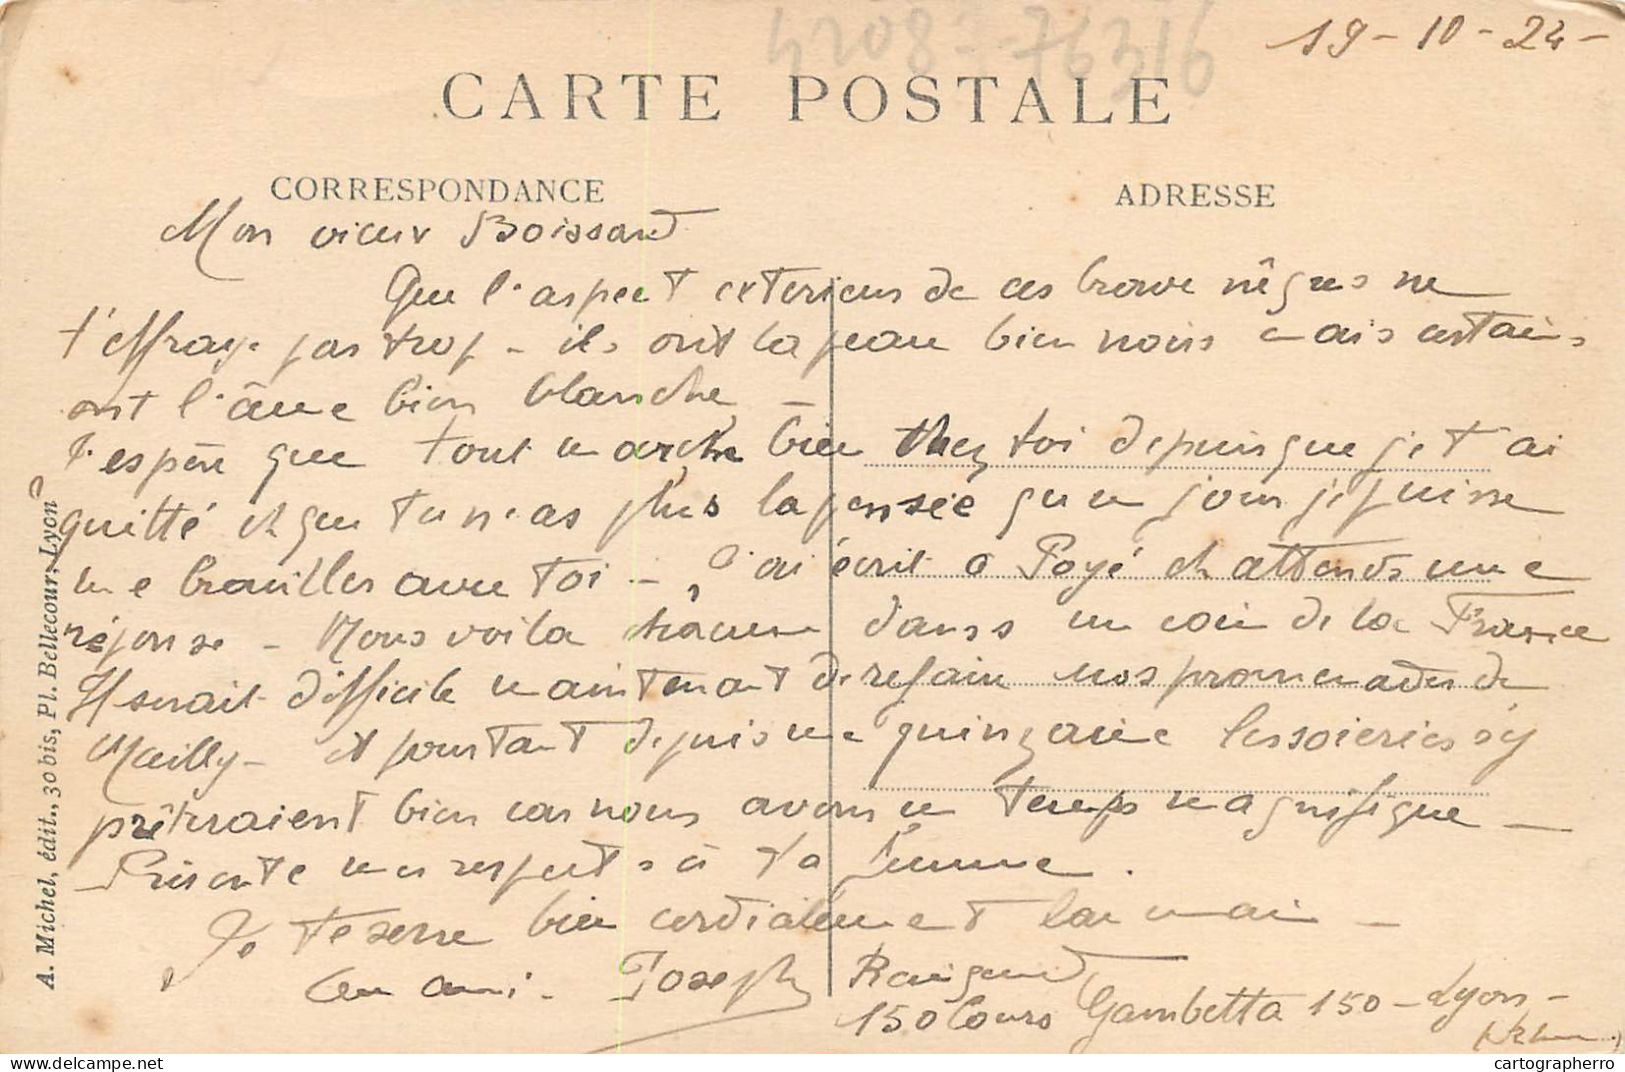 4208 - 76316
19-10-24-
CARTE POSTALE
CORRESPONDANCE
ADRESSE
Mon vieux Boissard
Que l'aspect exterieur de ces brave nêgres ne
t'effraye pas trop - ils ont la peau bien noirs mais certains
ont l'âme bien blanche -
J'espère que tout marche bien chez toi depuis que je t'ai
quitté et que tu n'as plus la pensée qu'un jour je puisse
me brouiller avec toi - J'ai écrit a Payé et attends une
réponse - Nous voila chacun dans un coin de la France
Il serait difficile maintenant de refaire nos promenades de
Mailly - et pourtant depuis une quinzaine les soieries s'y
prêteraient bien car nous avons un temps magnifique -
Présente mes respects à ta femme.
Je te serre bien cordialement la main -
Un ami - Joseph
150 Cours Gambetta 150 - Lyon -
A. Michel, édit., 30 bis, Pl. Bellecour, Lyon
cartographerro